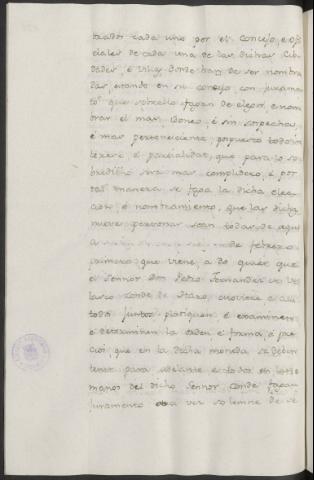 brados cada uno por el Concejo, e Ofi
ciales de cada una de las dichas Cib
dades, e Villas donde han de ser nombra
das, estando en su concejo, con juramen
to que sobrello fagan de elegir, e nom
brar el mas Bueno, e sin sospecha,
e mas perteneciente, pospuesto todo in
terese e parcialidat, que para lo so
bredicho sera mas complidero, e por
tal manera se faga la dicha elec
cion, e nombramiento, que las dichas
nueve personas sean todas de aqui
a de febrero
primero que viene, a do quier que
el Sennor Don Pedro Fernandes de Ve
lasco conde de Haro, estoviere e alli
todos juntos platiquen, e examinen,
e determinen la orden e forma, e pre
cios que en la dicha moneda se deben
tener para adelante e todos en las
manos del dicho Sennor conde fagan
juramento una vez solemne de se